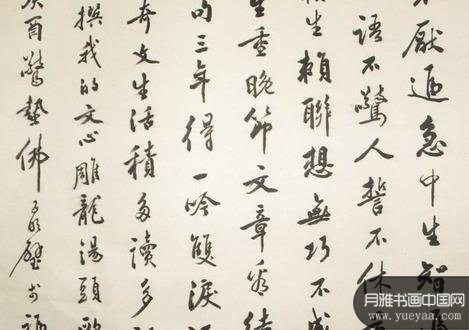 厭迺急中生智
語不驚人誓不休
生賴聯想無巧不成
生重晚節文章為緒
三年得一吟雙淚
奇文生活積多讀多
撰我的文心雕龍湯頭歌
酉驚蟄佛
月雅书画中国网
www.yueyaa.com